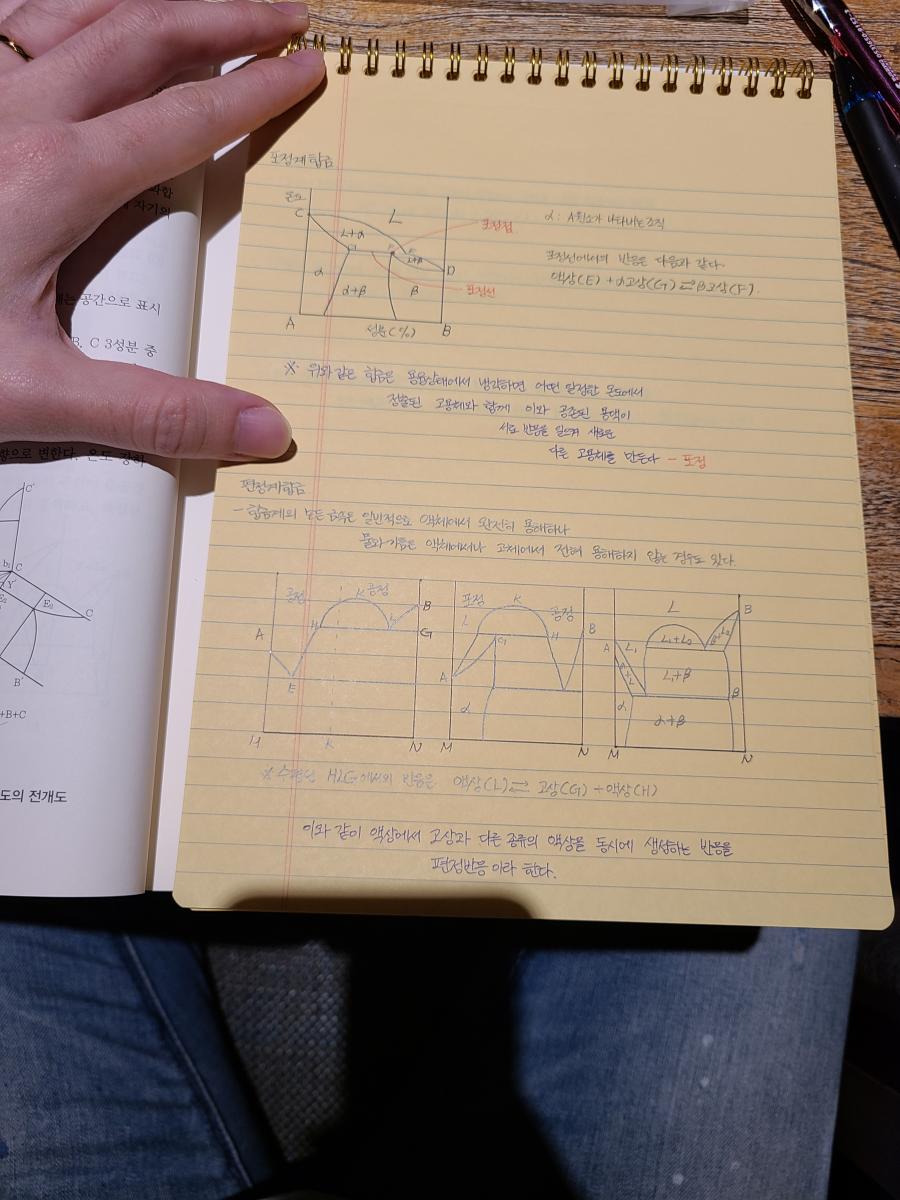 자기의
공간으로 표시
B. C 3성분 중
향으로 변한다. 온도
C'
b₁ C
Y
E₂
C
B'
+B+C
도의 전개도
포정계합금
온도
C
L
L+α
포정점
α
D
α+β
β
포정선
A
성분(%)
B
α : A원소가 나타내는 조직
포정선에서의 반응은 다음과 같다.
액상(E) + α고상(G) ⇄ β고상(F).
※ 위와 같은 합금은 용융상태에서 냉각하면 어떤 일정한 온도에서
정출된 고용체와 함께 이와 공존된 용액이
서로 반응을 일으켜 새로운
다른 고용체를 만든다 - 포정
편정계합금
- 합금계의 모든 금속은 일반적으로 액체에서 완전히 용해하나
물과 기름은 액체에서나 고체에서 전혀 용해하지 않는 경우도 있다.
공정
K
공정
A
H
B
G
E
M
K
N
포정
K
공정
L
G
H
B
A
α
M
N
L
B
A
L₁
L₁+L₂
β+L₂
α+L
L₁+β
α
B
α+β
M
N
※ 수평선 HLG에서의 반응은 액상(L) ⇄ 고상(G) + 액상(H)
이와 같이 액상에서 고상과 다른 종류의 액상을 동시에 생성하는 반응을
편정반응 이라 한다.